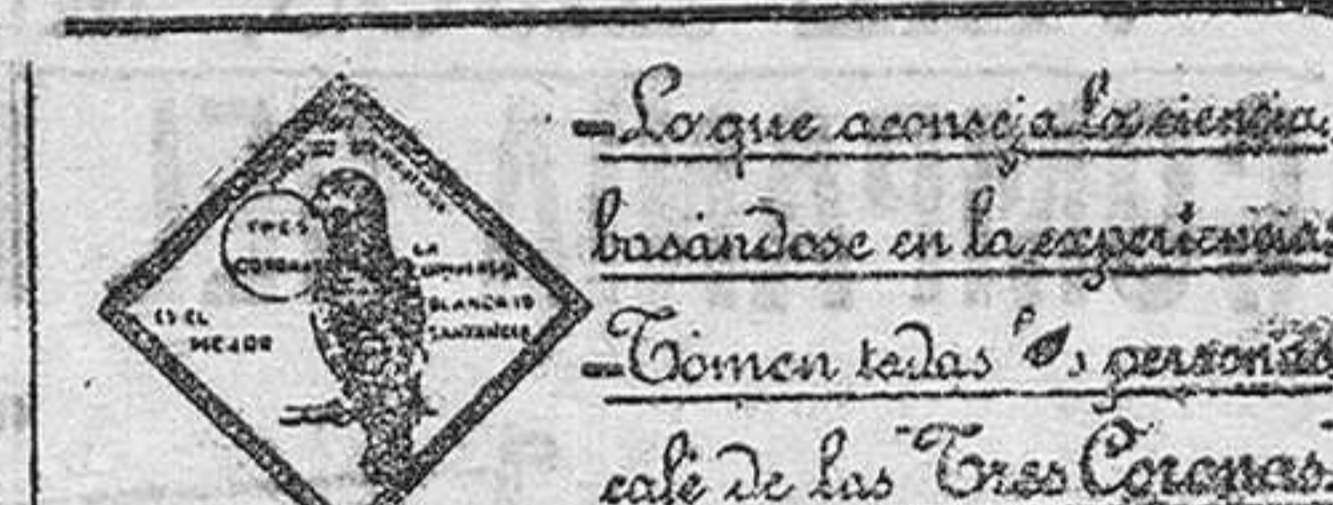 TRES
CORONAS
ES EL
MEJOR
LA
UNIVERSAL
BLANCA 19
SANTANDER
-Lo que aconseja la ciencia,
basándose en la experiencia:
-Tomen todas las personas
café de las "Tres Coronas".